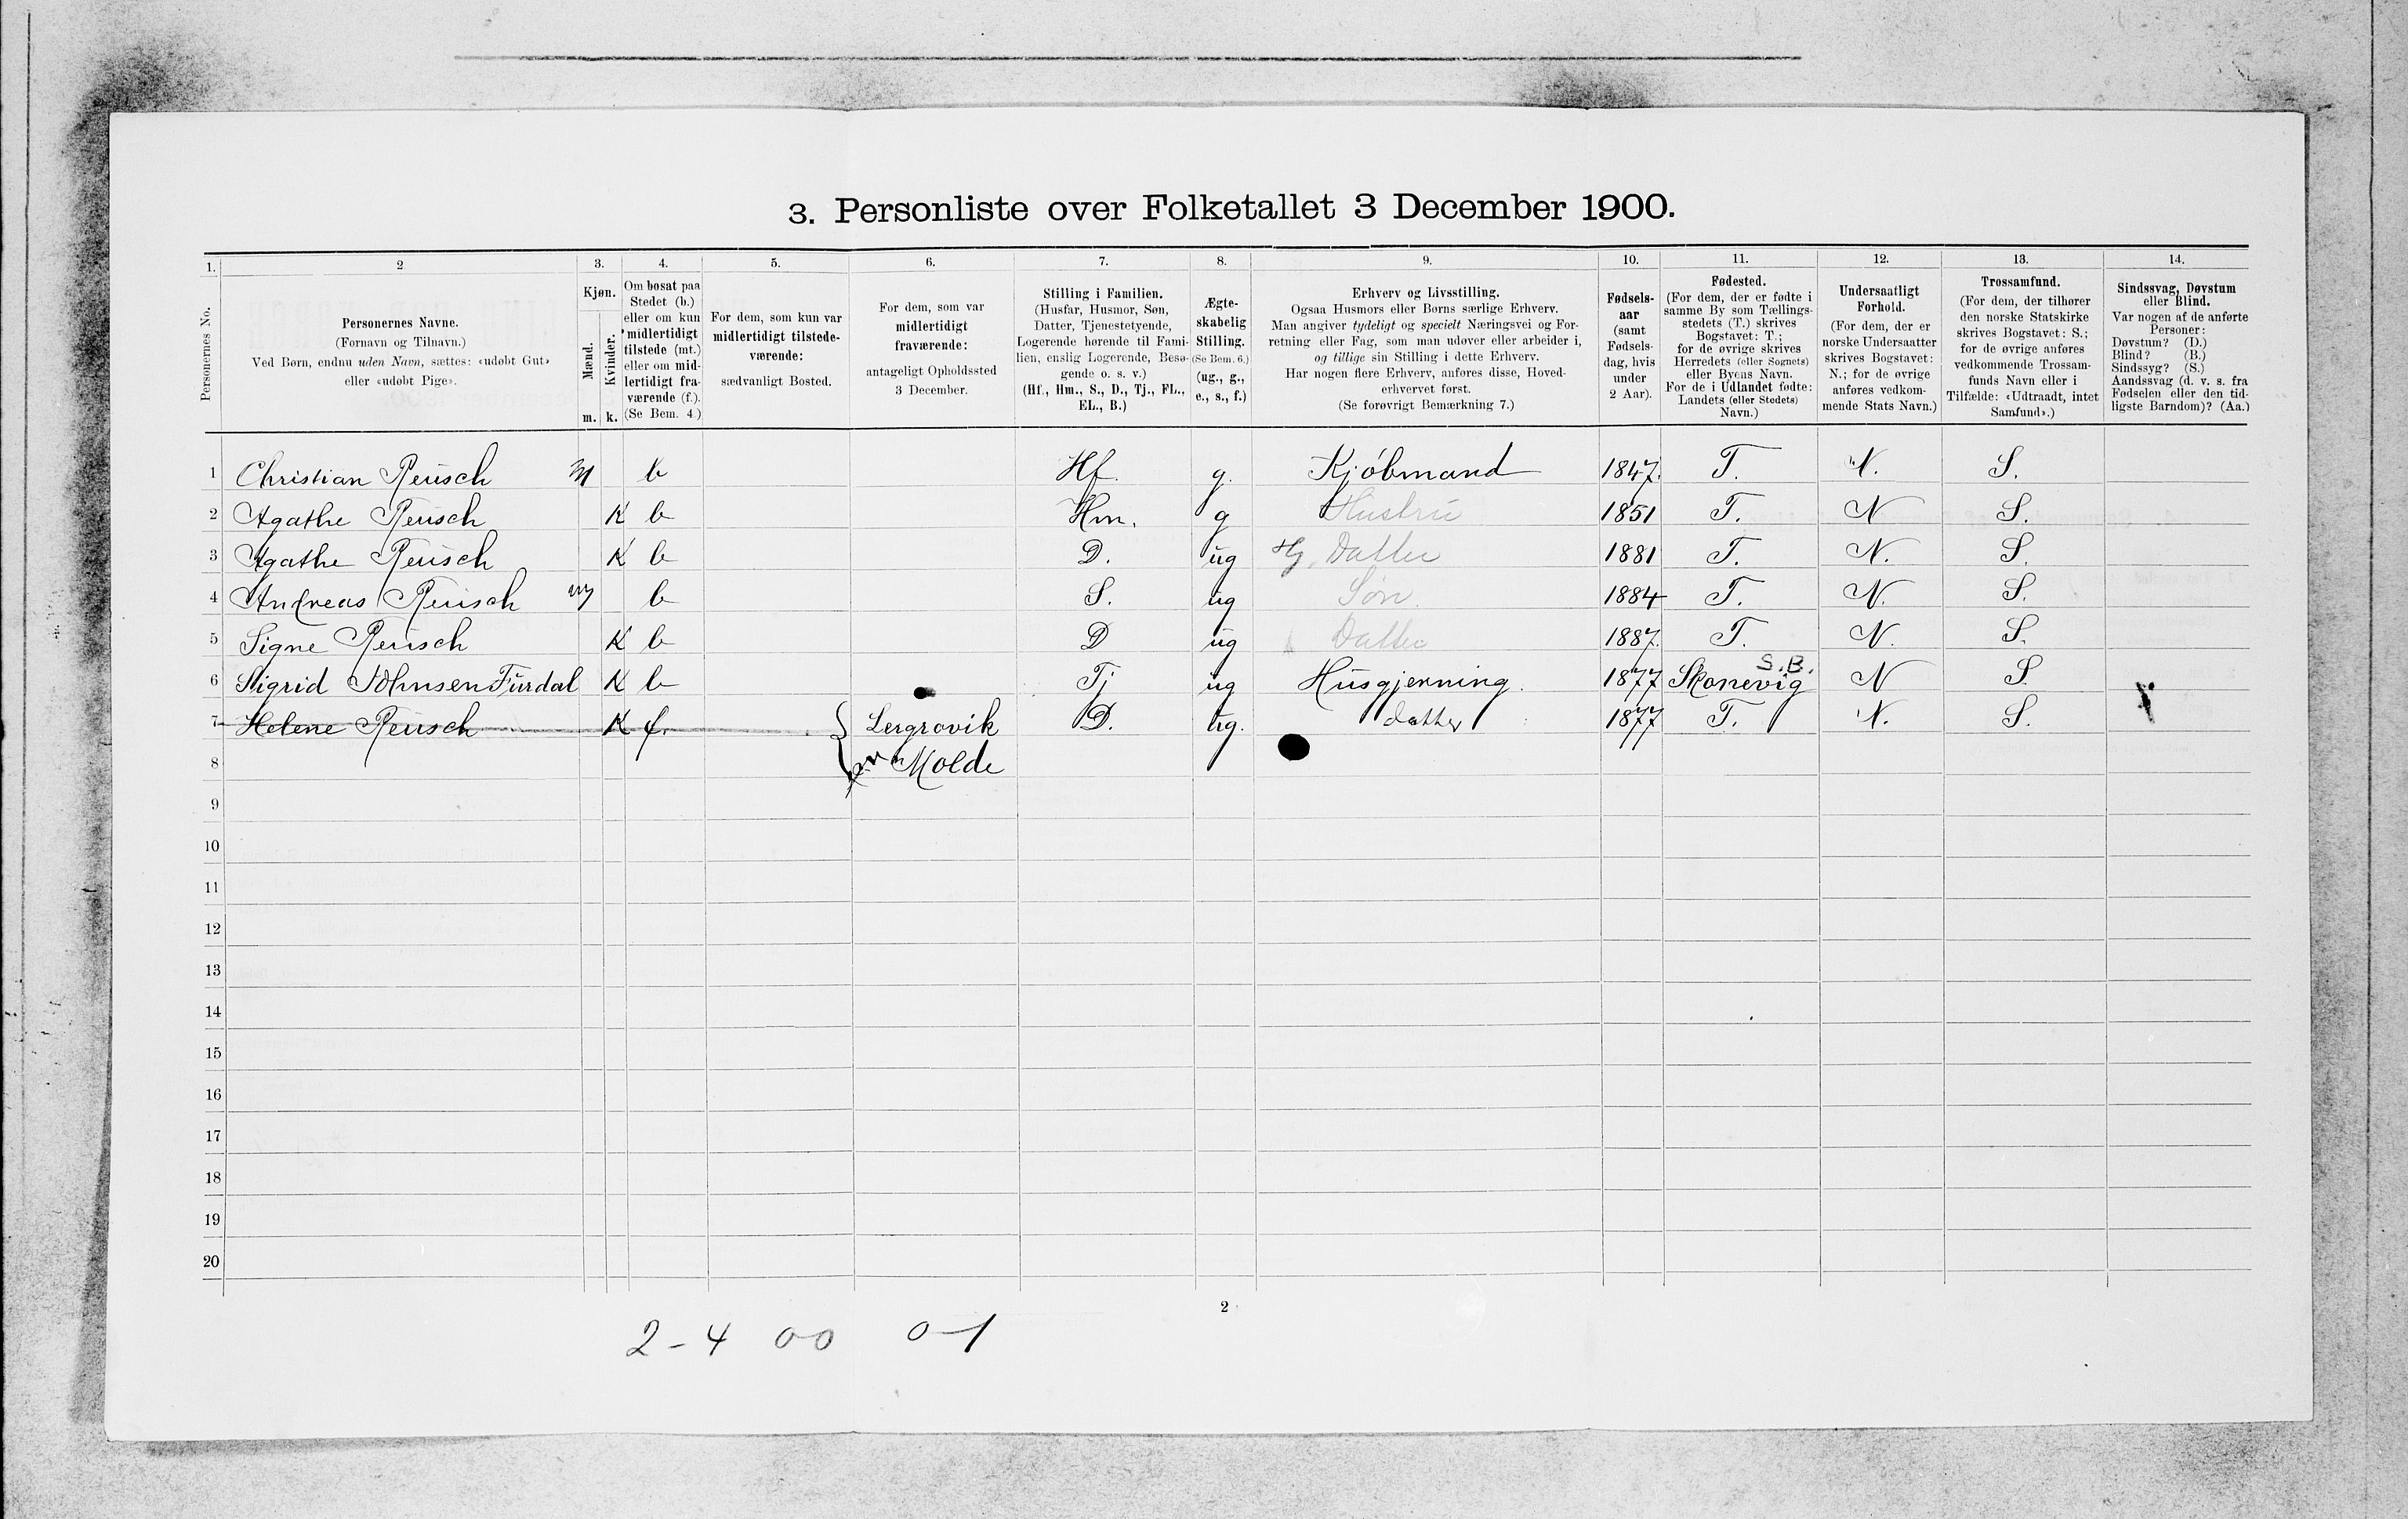 3. Personliste over Folketallet 3 December 1900.
1. 2 3. 4. 5. 6. 7. 8. 9. 10. 11. 12. 13. 14.
Personernes No.
Personernes Navne.
(Fornavn og Tilnavn.)
Ved Børn, endnu uden Navn, sættes: «udøbt Gut»
eller «udøbt Pige».
Kjøn.
Mænd.
Kvinder.
m. k.
Om bosat paa
Stedet (b.)
eller om kun
midlertidigt
tilstede (mt.)
eller om mid-
lertidigt fra-
værende (f.).
(Se Bem. 4.)
For dem, som kun var
midlertidigt tilstede-
værende:
sædvanligt Bosted.
For dem, som var
midlertidigt
fraværende:
antageligt Opholdssted
3 December.
Stilling i Familien.
(Husfar, Husmor, Søn,
Datter, Tjenestetyende,
Logerende hørende til Fami-
lien, enslig Logerende, Besø-
gende o. s. v.)
(Hf., Hm., S., D., Tj., FL.,
EL., B.)
Ægte-
skabelig
Stilling.
(Se Bem. 6.)
(ug., g.,
e., s., f.)
Erhverv og Livsstilling.
Ogsaa Husmors eller Børns særlige Erhverv.
Man angiver tydeligt og specielt Næringsvei og For-
retning eller Fag, som man udøver eller arbeider i,
og tillige sin Stilling i dette Erhverv.
Har nogen flere Erhverv, anføres disse, Hoved-
erhvervet først.
(Se forøvrigt Bemærkning 7.)
Fødsels-
aar
(samt
Fødsels-
dag, hvis
under
2 Aar).
Fødested.
(For dem, der er fødte i
samme By som Tællings-
stedets (T.) skrives
Bogstavet: T.;
for de øvrige skrives
Herredets (eller Sognets)
eller Byens Navn.
For de i Udlandet fødte:
Landets (eller Stedets)
Navn.)
Undersaatligt
Forhold.
(For dem, der er
norske Undersaatter
skrives Bogstavet:
N.; for de øvrige
anføres vedkom-
mende Stats Navn.)
Trossamfund.
(For dem, der tilhører
den norske Statskirke
skrives Bogstavet: S.;
for de øvrige anføres
vedkommende Trossam-
funds Navn eller i
Tilfælde: «Udtraadt, intet
Samfund».)
Sindssvag, Døvstum
eller Blind.
Var nogen af de anførte
Personer:
Døvstum? (D.)
Blind? (B.)
Sindssyg? (S.)
Aandssvag (d. v. s. fra
Fødselen eller den tid-
ligste Barndom)? (Aa.)
1 Christian Reusch M b Hf. g. Kjøbmand 1847. T. N. S.
2 Agathe Reusch K b Hm. g Hustru 1851 T. N S.
3 Agathe Reusch K b D. ug Hg. Datter 1881 T. N. S.
4 Andreas Reusch m b S. ug Søn. 1884 T. N. S.
5 Signe Reusch K b D ug Datter 1887. T. N. S.
S.B.
6 Sigrid Johnsen Furdal K b Tj ug Husgjerning. 1877 Skonevig N S.
7 Helene Reusch K f. Lergrovik D. ug. datter 1877 T. N. S.
8 Molde
9
10
11
12
13
14
15
16
17
18
19
20
2
2-4 00 0-1